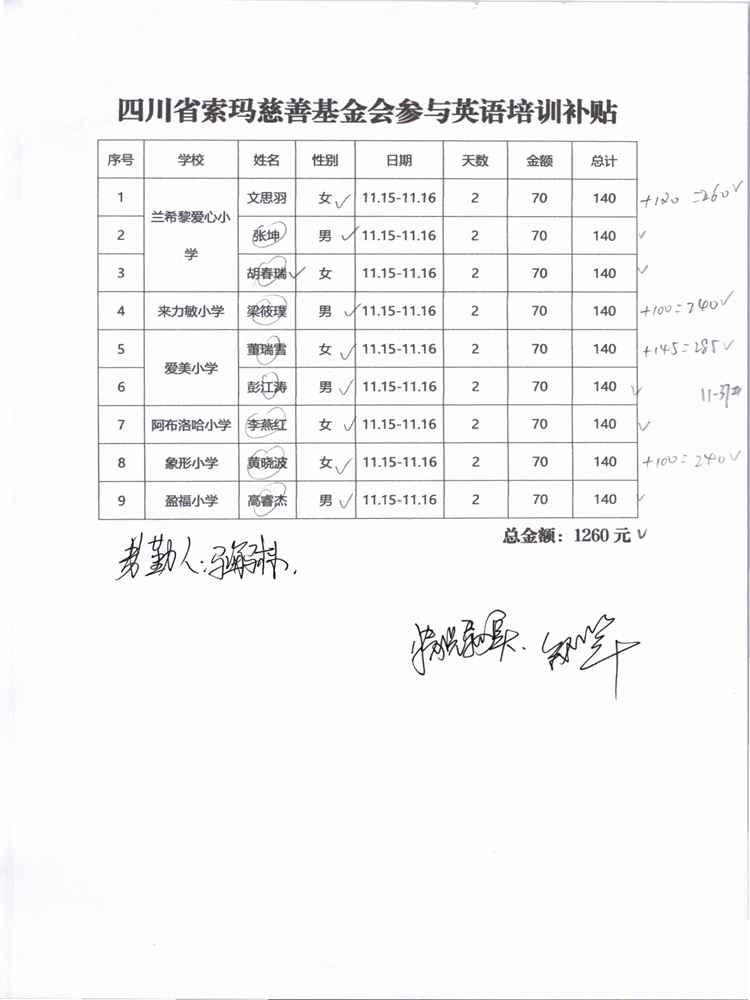 四川省索玛慈善基金会参与英语培训补贴
序号 学校 姓名 性别 日期 天数 金额 总计
1 兰希黎爱心小学 文思羽 女 ✓ 11.15-11.16 2 70 140 +120 =260 ✓
2 张坤 男 ✓ 11.15-11.16 2 70 140 ✓
3 胡春瑞 ✓ 女 11.15-11.16 2 70 140 ✓
4 来力敏小学 梁筱璞 男 ✓ 11.15-11.16 2 70 140 +100=240 ✓
5 爱美小学 董瑞雪 女 ✓ 11.15-11.16 2 70 140 +145=285 ✓
6 彭江涛 男 ✓ 11.15-11.16 2 70 140 ✓ 11-37#
7 阿布洛哈小学 李燕红 女 ✓ 11.15-11.16 2 70 140 ✓
8 象形小学 黄晓波 女 ✓ 11.15-11.16 2 70 140 +100=240 ✓
9 盈福小学 高睿杰 男 ✓ 11.15-11.16 2 70 140 ✓
总金额：1260 元 ✓
考勤人：